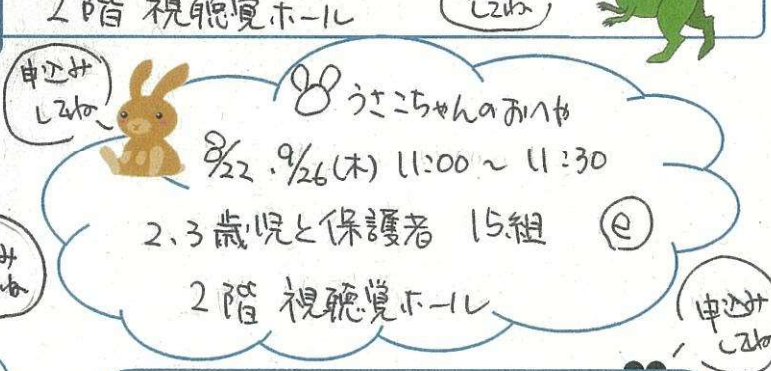 2階 視聴覚ホール
してね
申込み
してね
うさこちゃんのおへや
8/22、9/26(木) 11:00～11:30
2、3歳児と保護者 15組 ⓔ
2階 視聴覚ホール
申込み
してね